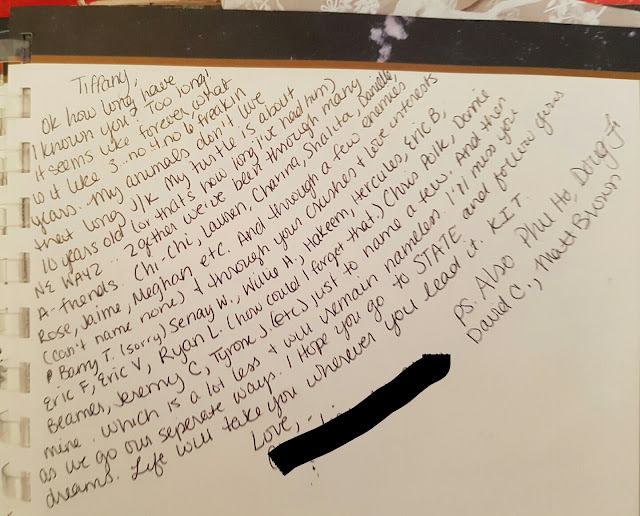 Tiffany,
Ok how long have
I known you? Too long!!
It seems like forever, what
is it like 3...no 4 no 6 freakin
years. My animals don't live
that long J/K My turtle is about
10 years old (or that's how long i've had him)
NE WAYZ... 2gether we've been through many
A-friends. Chi-Chi, Lauren, Channa, Shalita, Danielle,
Rose, Jaime, Meghan, etc. And through a few enemies
(can't name none) & through your crushes & love interests
Barry T. (sorry) Senay W., Willie H., Hakeem, Hercules, Eric B,
Eric F, Eric V, Ryan L. (how could I forget that.) Chris Polk, Donnie
Beamer, Jeremy C, Tyrone J. (etc) just to name a few. And then
mine. Which is a lot less & will remain nameless. I'll miss you
as we go our seperate ways. I Hope you go to STATE and follow your
dreams. Life will take you wherever you lead it. K.I.T.
Love,
PS. Also Phu Ho, Doug F,
David C., Matt Brown